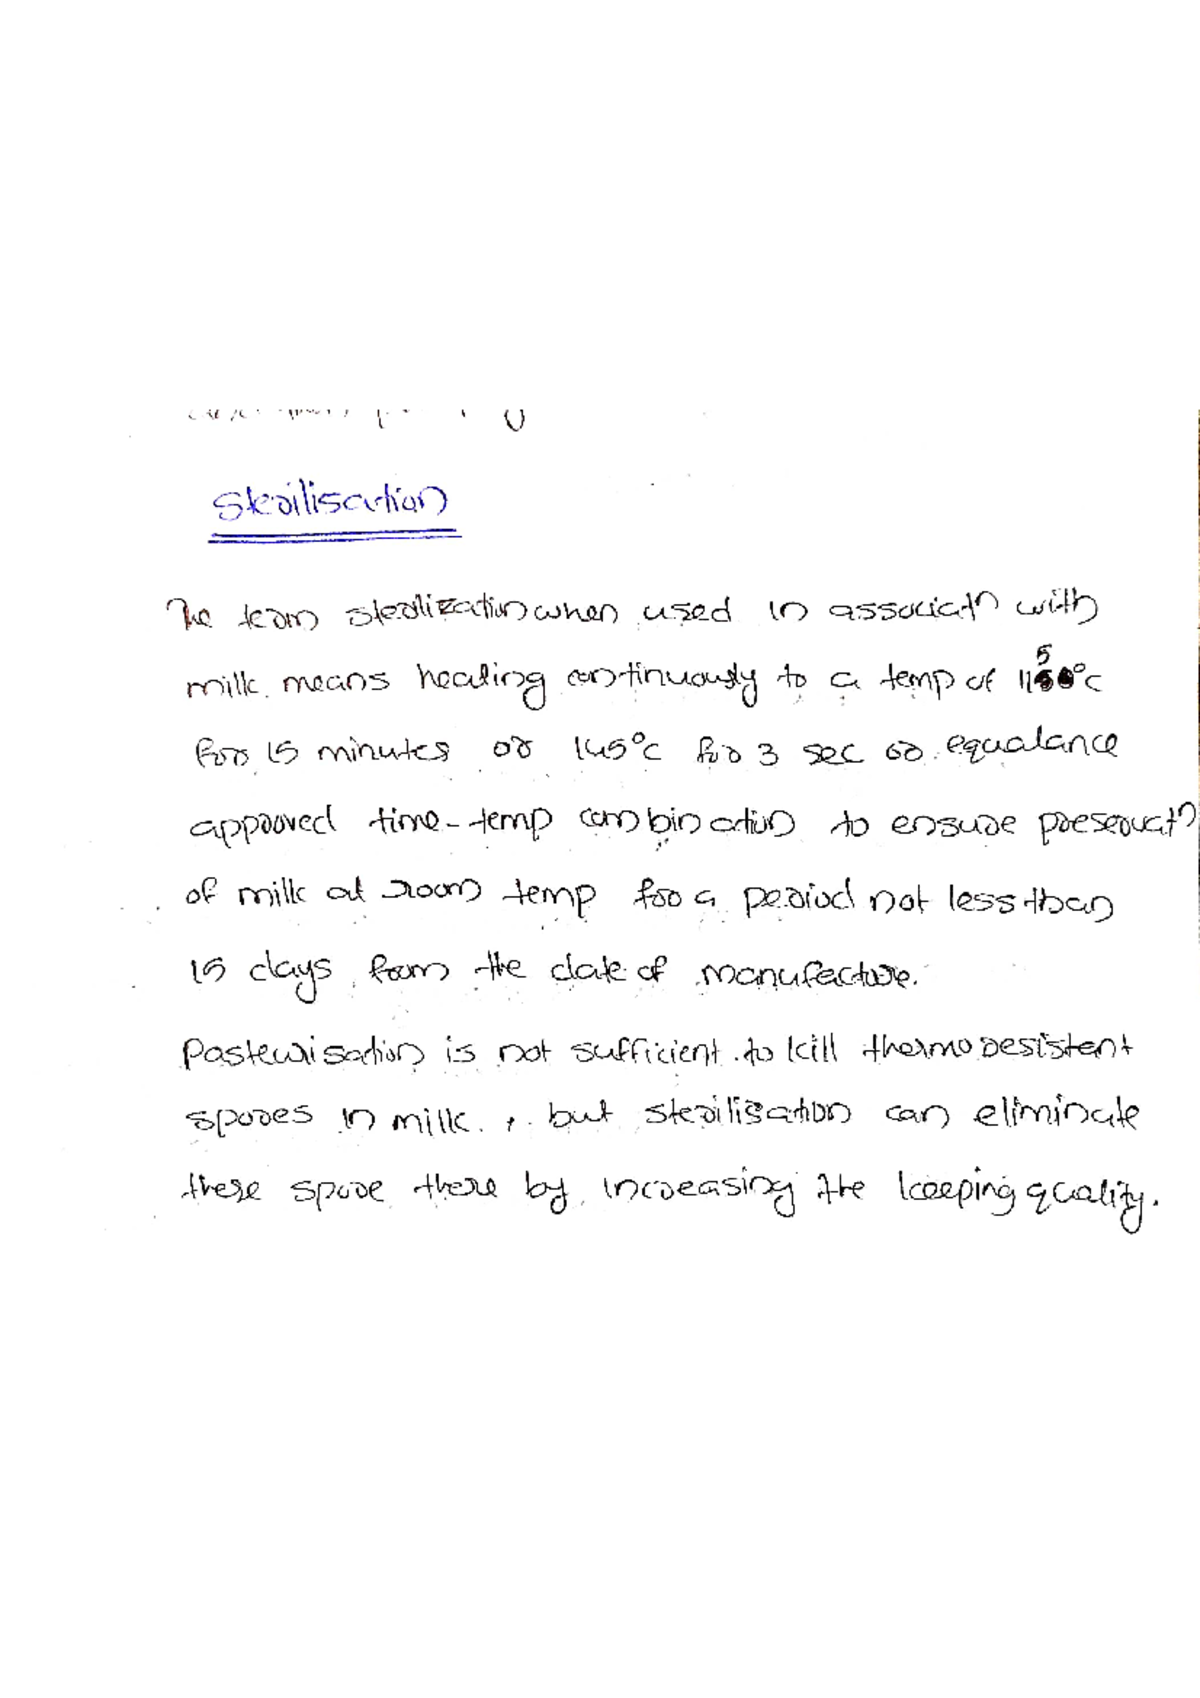 Sterilisation
The team sterilization when used in associatn with
milk means heating continuously to a temp of 115°c
for 15 minutes or 145°c for 3 sec or equalance
approved time-temp combination to ensure preservatn
of milk at room temp for a period not less than
15 days from the date of manufacture.
Pasteurisation is not sufficient to kill thermo resistent
spores in milk, but sterilisation can eliminate
these spore there by increasing the keeping quality.